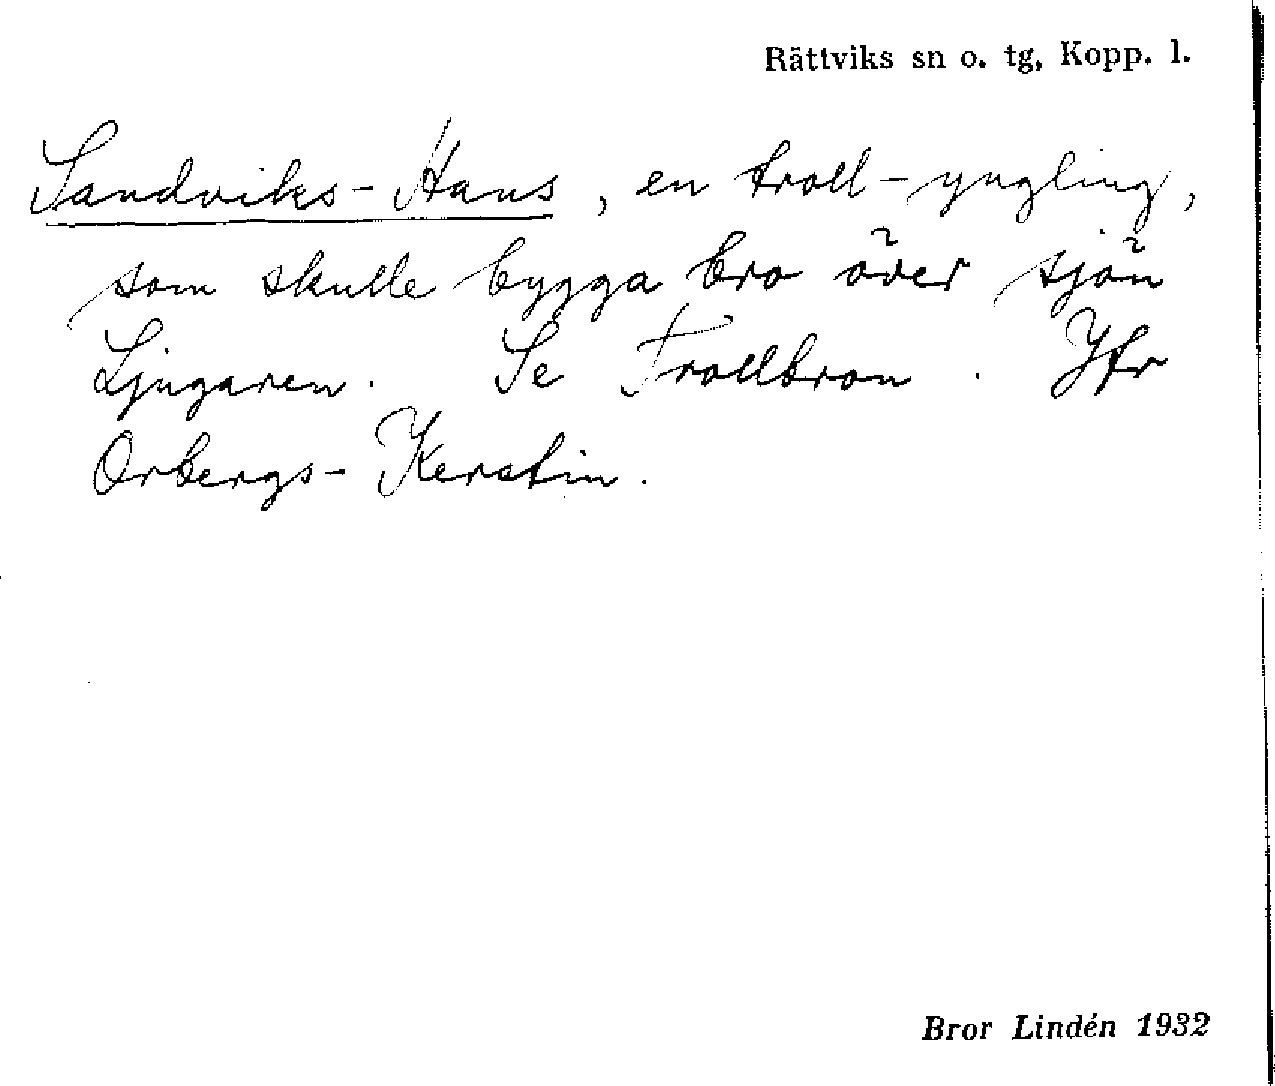 Rättviks sn o. tg, Kopp. l.
Sandviks-Hans, en troll-yngling,
som skulle bygga bro över sjön
Ljugaren. Se Trollbron. Jfr
Orbergs-Kerstin.
Bror Lindén 1932